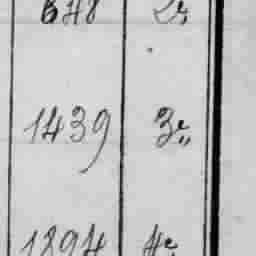 648 2й
1439 3й
1894 4й